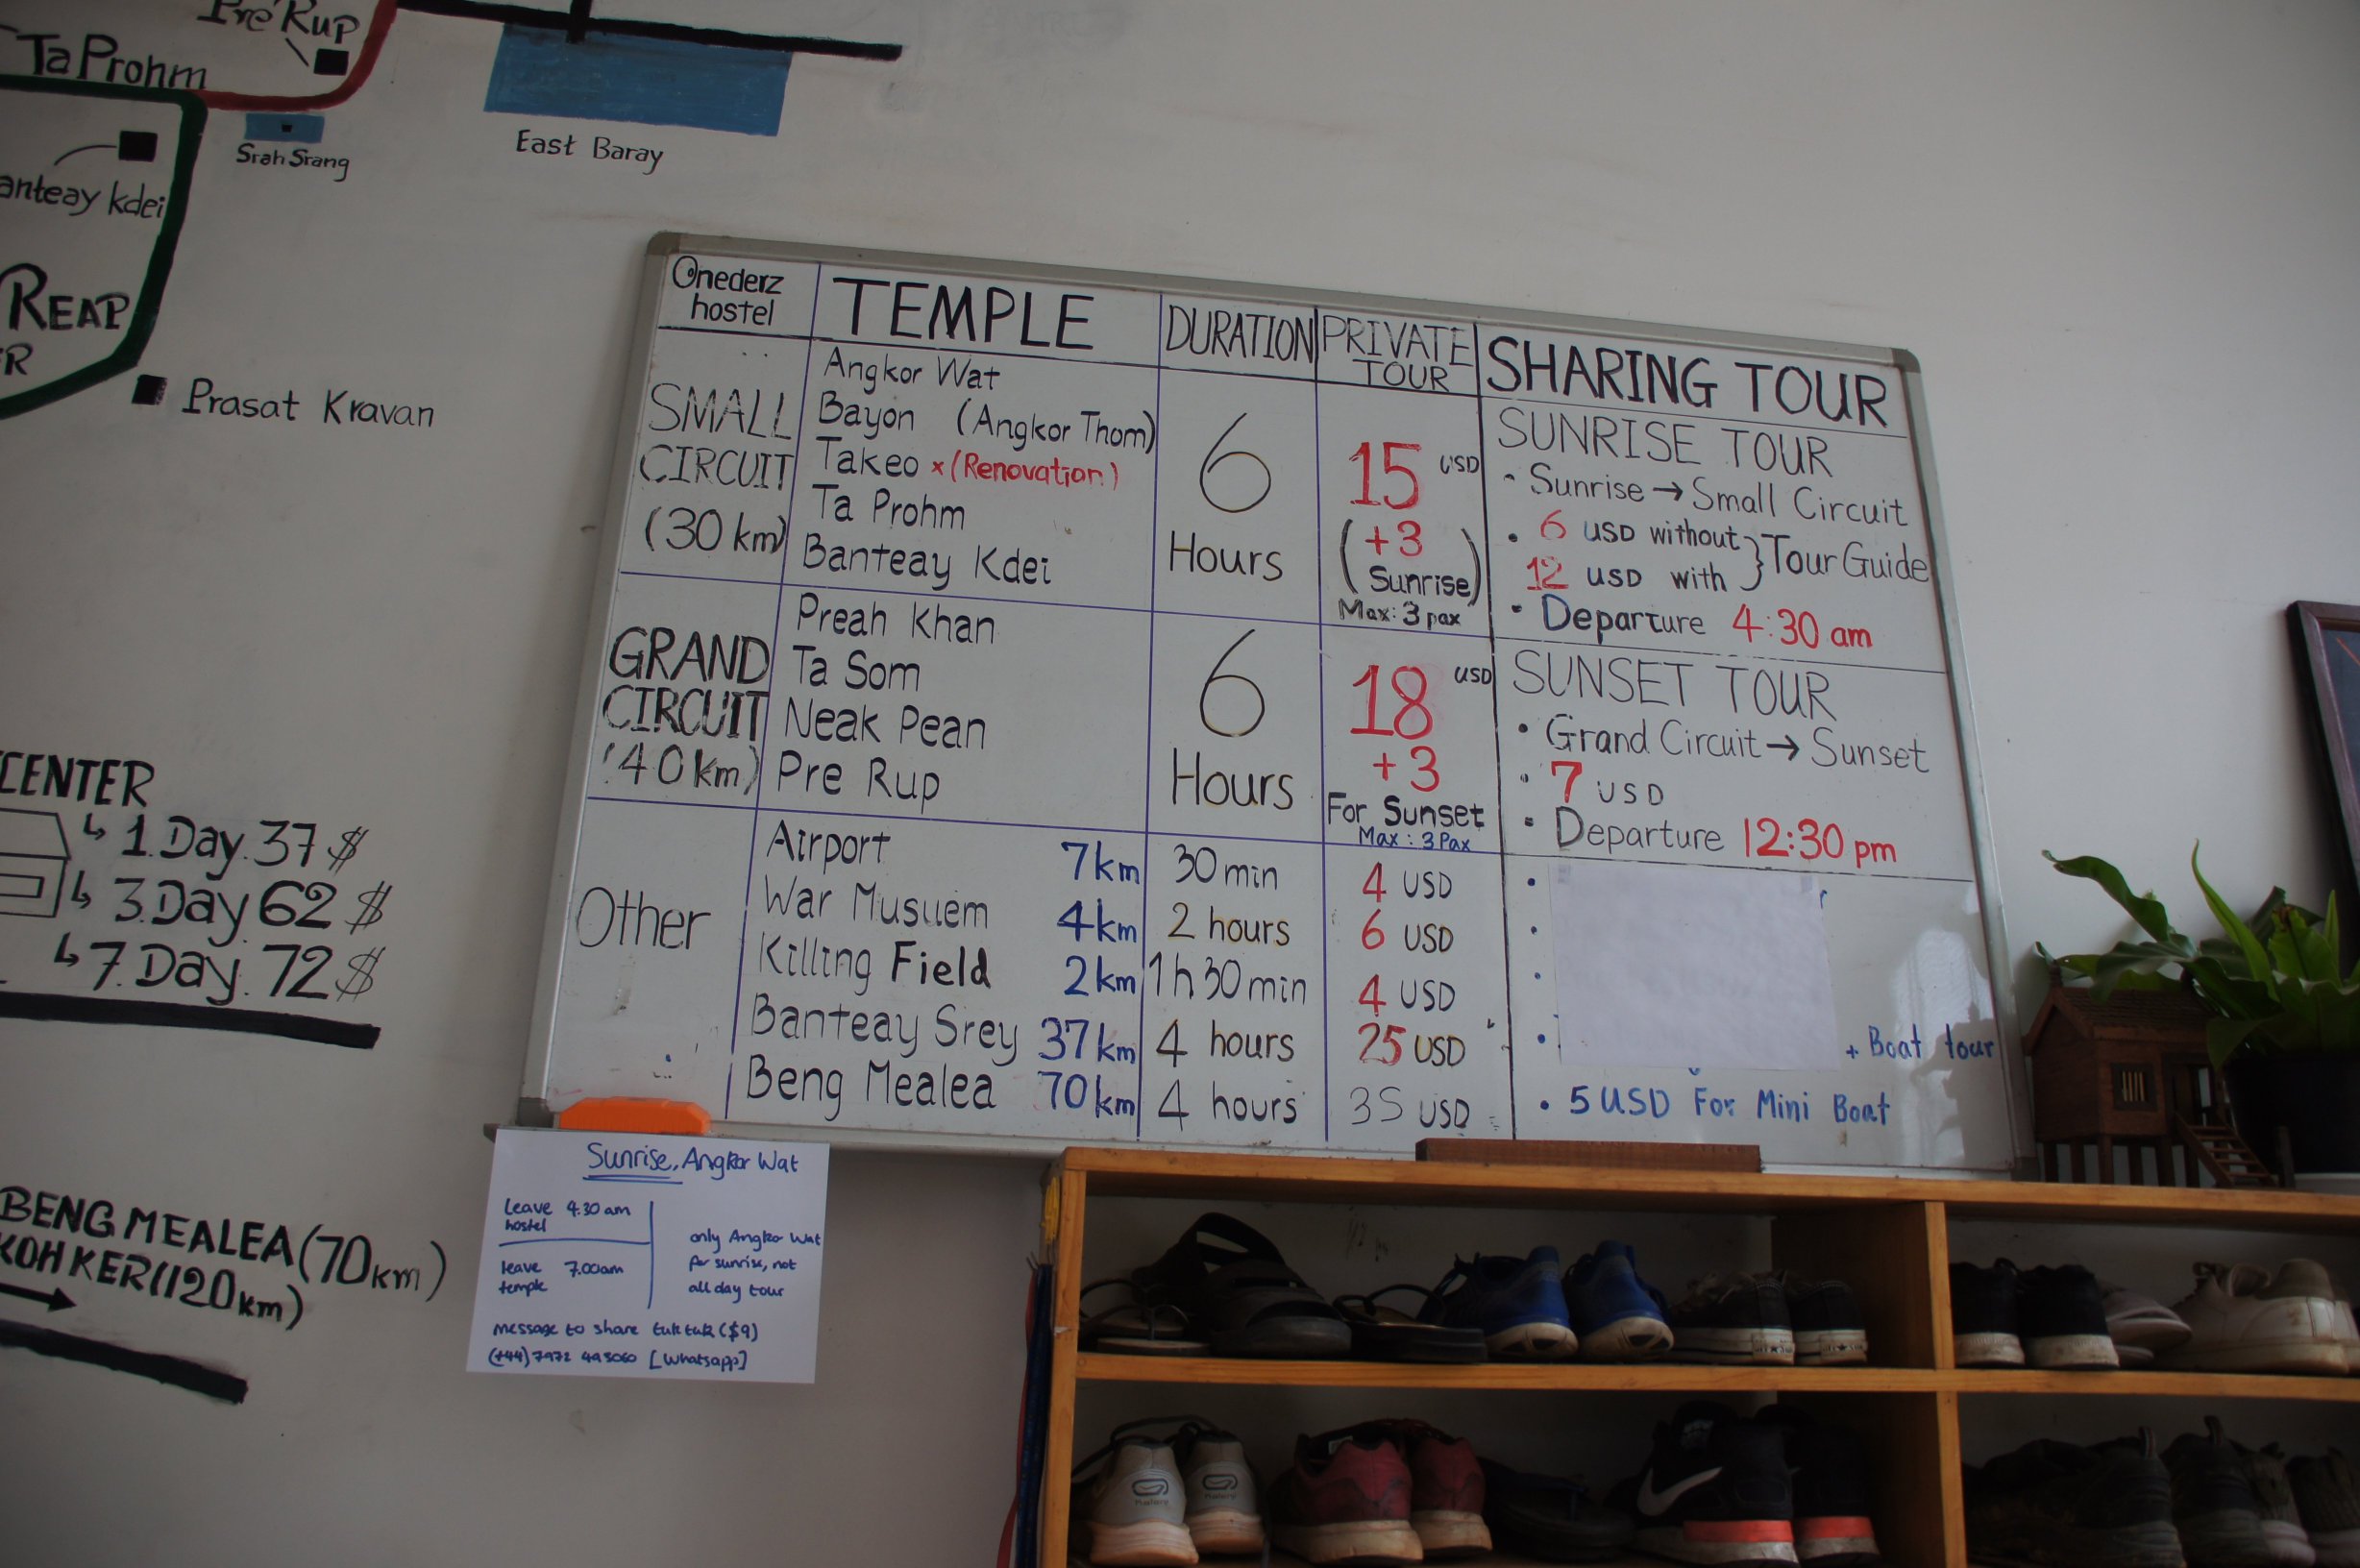 Pre Rup
Ta Prohm
Srah Srang
East Baray
anteay Kdei
REAP
R
Prasat Kravan
CENTER
↳ 1.Day.37$
↳ 3.Day 62$
↳ 7.Day.72$
BENG MEALEA (70km)
KOH KER (120km)
Onederz
hostel
TEMPLE
DURATION
PRIVATE
TOUR
SHARING TOUR
SMALL
CIRCUIT
(30 km)
Angkor Wat
Bayon (Angkor Thom)
Takeo x (Renovation)
Ta Prohm
Banteay Kdei
6
Hours
15 USD
(+3
Sunrise)
Max: 3 pax
SUNRISE TOUR
• Sunrise → Small Circuit
• 6 USD without } Tour Guide
12 USD with
• Departure 4:30 am
GRAND
CIRCUIT
(40 km)
Preah Khan
Ta Som
Neak Pean
Pre Rup
6
Hours
18 USD
+3
For Sunset
Max: 3 Pax
SUNSET TOUR
• Grand Circuit → Sunset
• 7 USD
• Departure 12:30 pm
Other
Airport 7km 30 min 4 USD
War Musuem 4km 2 hours 6 USD
Killing Field 2km 1h 30 min 4 USD
Banteay Srey 37km 4 hours 25 USD
+ Boat tour
Beng Mealea 70km 4 hours 35 USD
• 5 USD For Mini Boat
Sunrise, Angkor Wat
Leave 4.30 am
hostel
leave 7.00am
temple
only Angkor Wat
for sunrise, not
all day tour
message to share tuk tuk ($9)
(+44) 7972 493060 [Whatsapp]